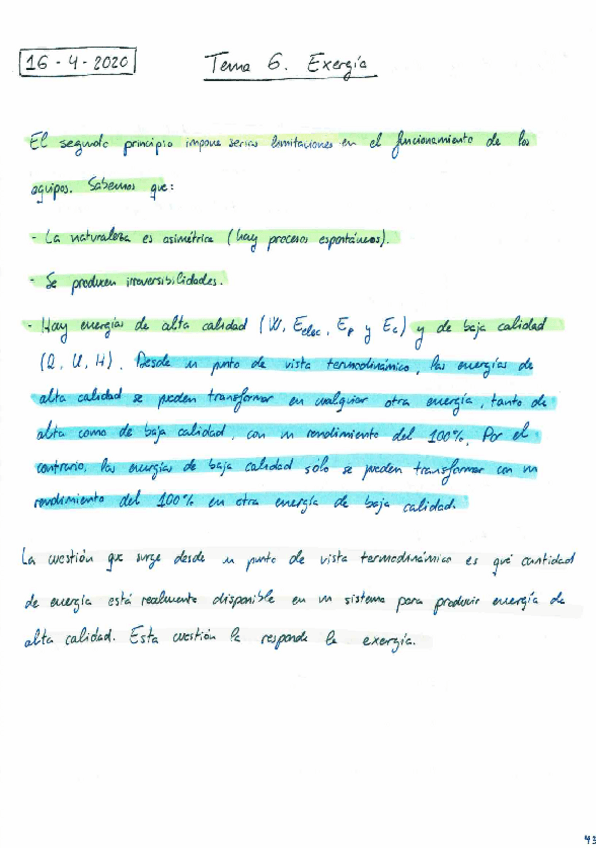 16-4-2020
Tema 6. Exergía
El segundo principio impone serias limitaciones en el funcionamiento de los
equipos. Sabemos que:
- La naturaleza es asimétrica (hay procesos espontáneos).
- Se producen irreversibilidades.
- Hay energías de alta calidad (W, Eelec, Ep y Ec) y de baja calidad
(Q, U, H). Desde un punto de vista termodinámico, las energías de
alta calidad se pueden transformar en cualquier otra energía, tanto de
alta como de baja calidad, con un rendimiento del 100%. Por el
contrario, las energías de baja calidad sólo se pueden transformar con un
rendimiento del 100% en otra energía de baja calidad.
La cuestión que surge desde un punto de vista termodinámico es qué cantidad
de energía está realmente disponible en un sistema para producir energía de
alta calidad. Esta cuestión la responde la exergía.
43